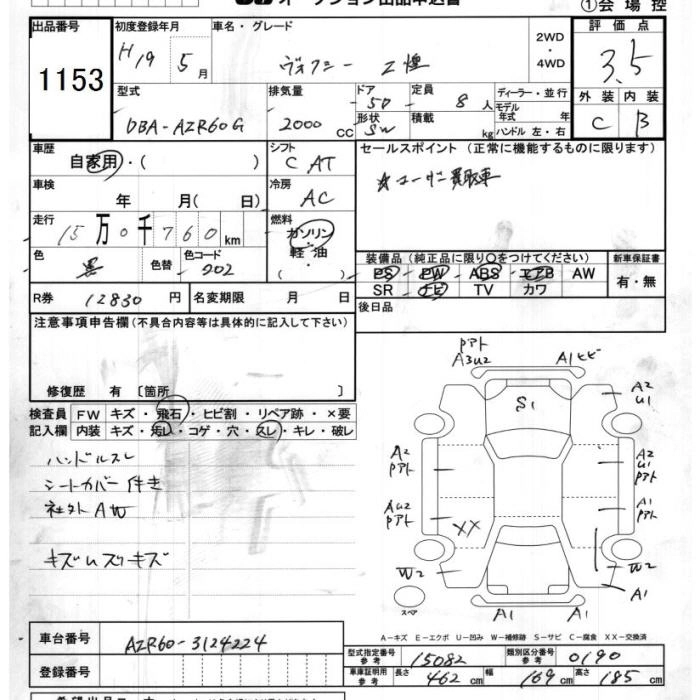 ①会場控
出品番号
1153
初度登録年月
H19 5月
車名・グレード
ヴォクシー Z煌
2WD
・
4WD
評価点
3.5
外装 内装
C B
型式
DBA-AZR60G
排気量
2000 CC
ドア
5D
形状
SW
定員
8人
積載
kg
ディーラー・並行
モデル
年式 年
ハンドル 左・右
車歴
自家用・( )
シフト
C AT
セールスポイント (正常に機能するものに限ります)
☆ユーザー買取車
車検
年 月( 日)
冷房
AC
走行
15万0千760km
燃料
ガソリン
・
軽・油
( )
色
黒
色替
色コード
202
装備品(純正品に限り○をつけてください)
PS PW ABS エアB AW
SR ナビ TV カワ
新車保証書
有・無
R券 12830円
名変期限 月 日
後日品
注意事項申告欄(不具合内容等は具体的に記入して下さい)
修復歴 有 〔箇所 〕
検査員 FW キズ・飛石・ヒビ割・リペア跡・×要
記入欄 内装 キズ・汚レ・コゲ・穴・スレ・キレ・破レ
ハンドルスレ
シートカバー付き
社外AW
キズ
スリキズ
Pアト
A3U2
A1ヒビ
S1
A2
U1
A2
Pアト
A2
U1
Pアト
AU2
Pアト
A1
Pアト
XX
W2
W2
A1
A1
A1
スペア
A-キズ E-エクボ U-凹み W-補修跡 S-サビ C-腐食 XX-交換済
車台番号
AZR60-3124224
登録番号
型式指定番号
参考
15082
類別区分番号
参考
0190
車庫証明用
参考
長さ 462cm 幅 169cm 高さ 185cm